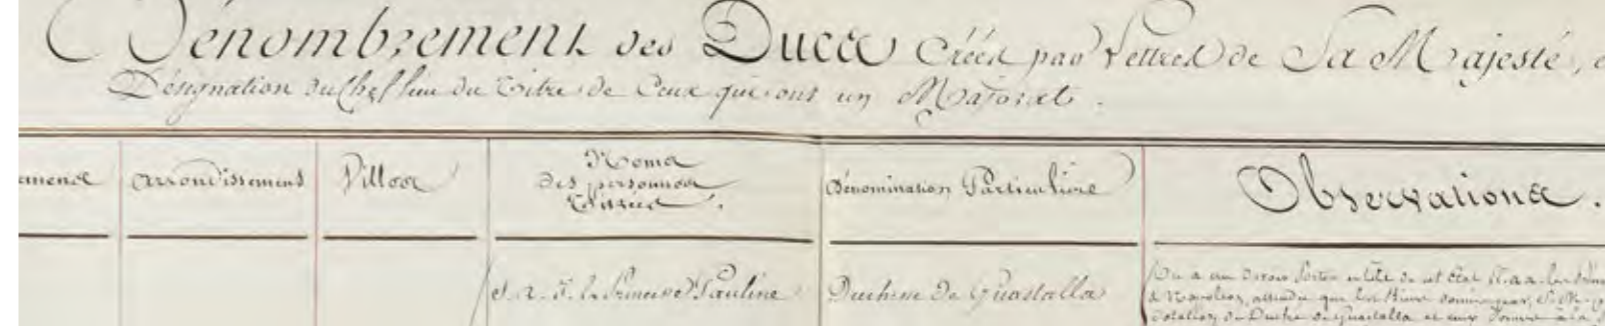 Dénombrement des Ducs créés par Lettres de Sa Majesté,
Désignation du Chef lieu du Titre de Ceux qui ont un Majorat.
arrondissements
Villes
Noms
des personnes
titrées.
Dénomination Particulière
Observations.
S. A. I. la Princesse Pauline
Duchesse de Guastalla
On a cru devoir porter en tête de cet état
à Napoléon, attendu que
Duché de Guastalla et